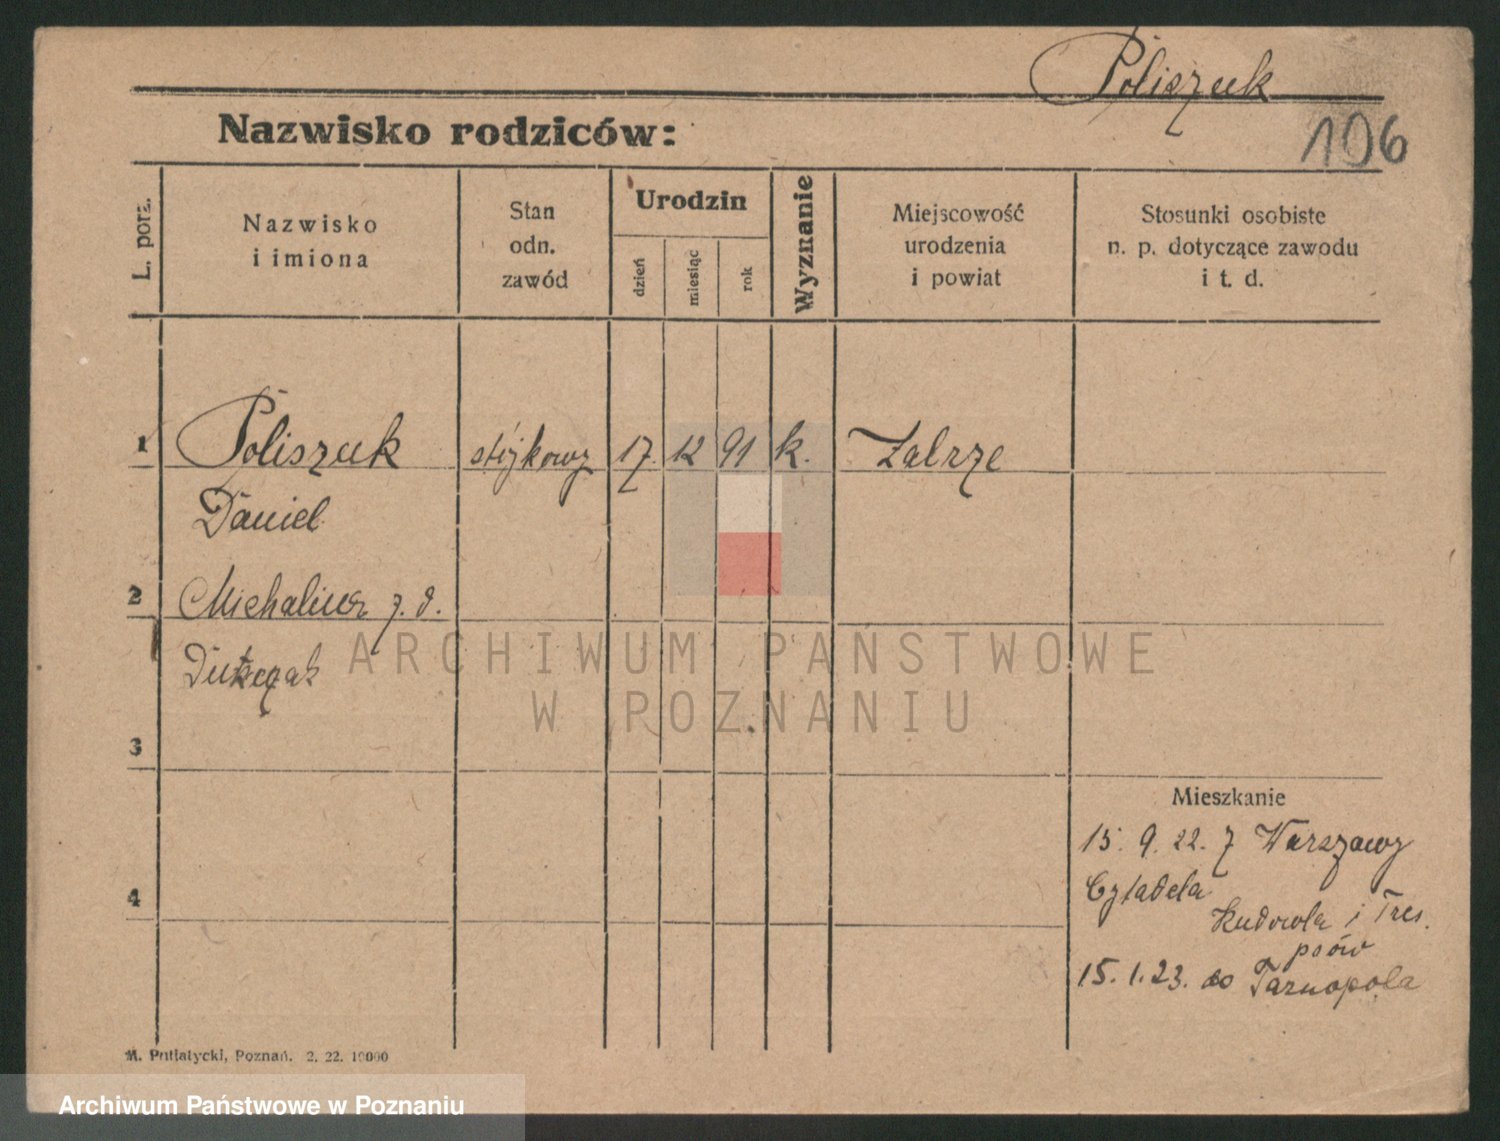 Poliszuk
106
Nazwisko rodziców:
L. porz.
Nazwisko
i imiona
Stan
odn.
zawód
Urodzin
dzień
miesiąc
rok
Wyznanie
Miejscowość
urodzenia
i powiat
Stosunki osobiste
n. p. dotyczące zawodu
i t. d.
1 Poliszuk stójkowy 17. 12 91 k. Zabrze
Daniel
2 Michalina z. d.
3
4
Mieszkanie
15. 9. 22. z Warszawy
Cytadela
Hodowla i Tres.
psów
15. 1. 23. do Tarnopola
M. Putiatycki, Poznań. 2. 22. 10000
ARCHIWUM PAŃSTWOWE
W POZNANIU
Archiwum Państwowe w Poznaniu